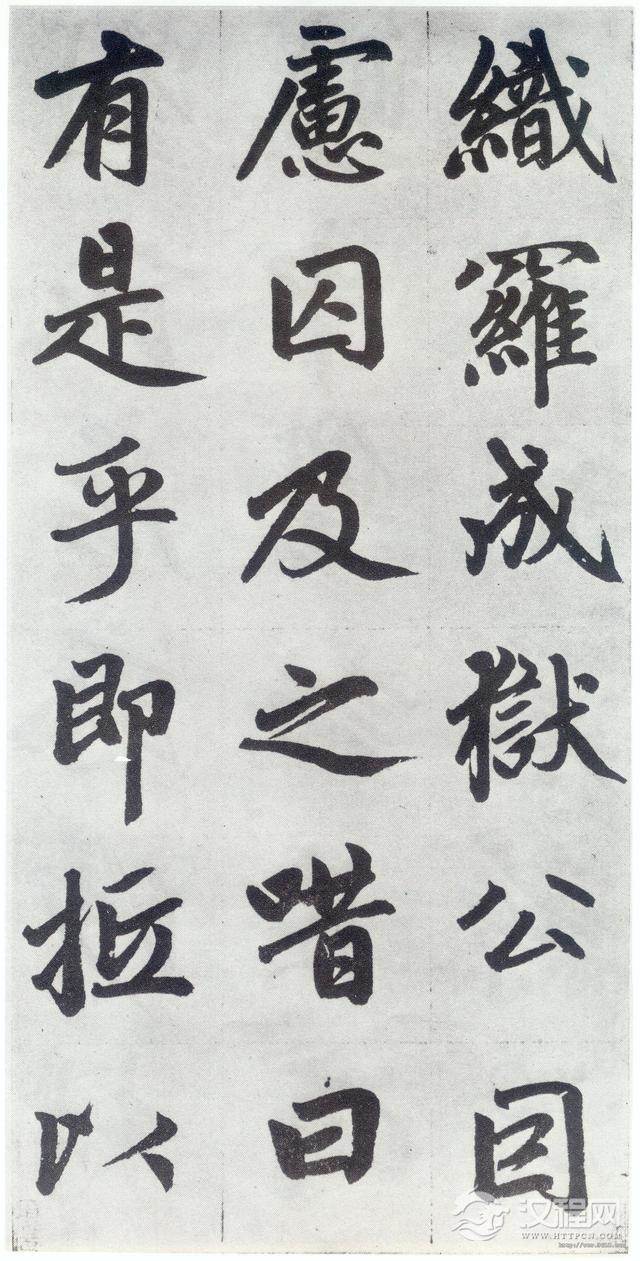 織羅成獄公因
慮囚及之喈曰
有是乎即抵以
汉程网
WWW.HTTPCN.COM